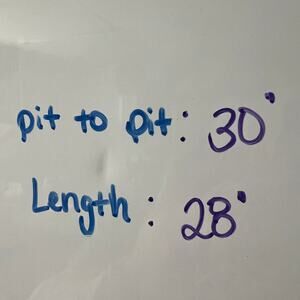 pit to pit: 30'
Length: 28'